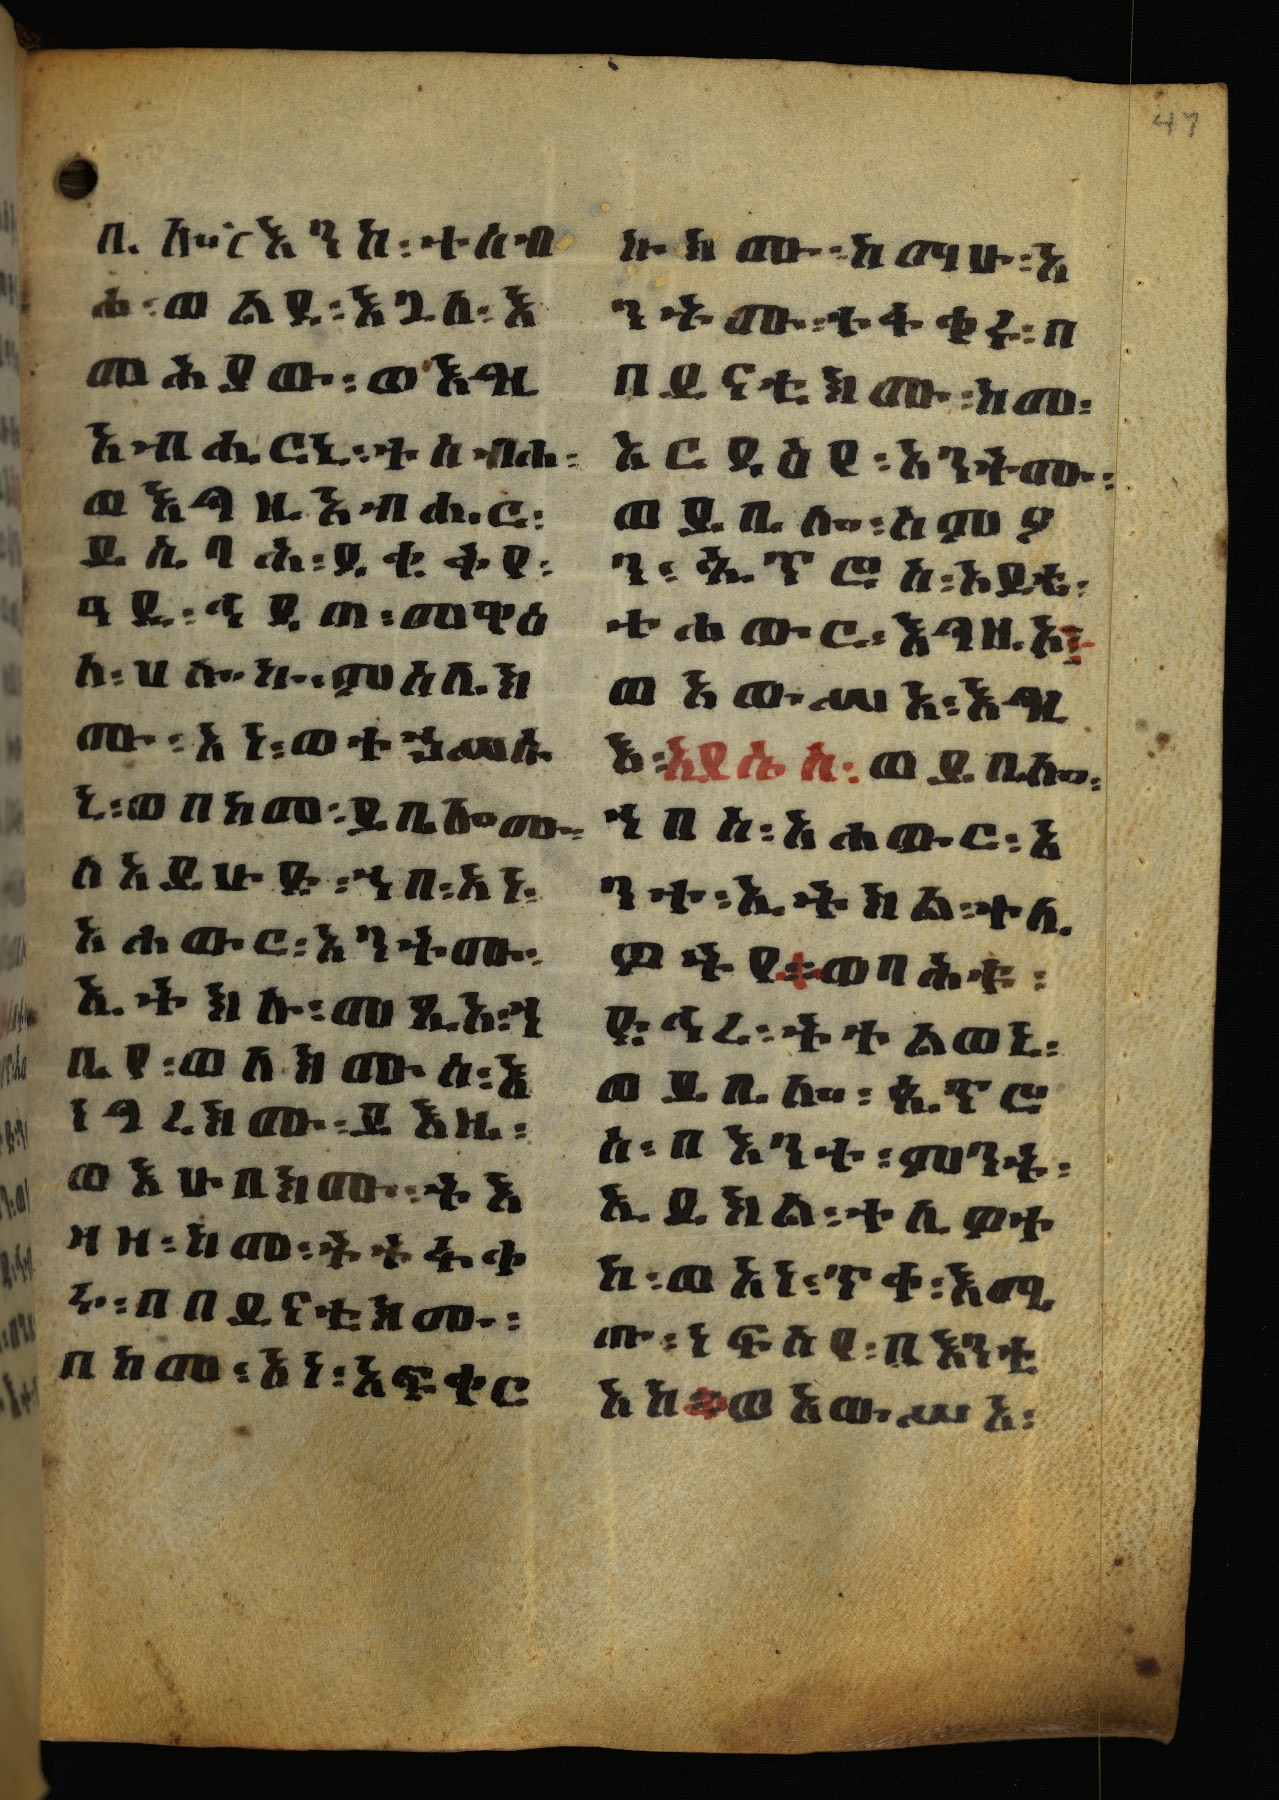 እንከ፡ተሰብ
ሐ፡ወልደ፡እጓለ፡እ
መሕያው፡ወእግዚ
አብሔርኒ፡ተሰብሐ፡
ወእግዚአብሔር፡
ይሴባሕ፡ደቂቅየ፡
ዓዲ፡ኅዳጠ፡መዋዕ
ለ፡ሀሎኩ፡ምስሌክ
ሙ፡አነ፡ወተኀሥሡ
ኒ፡ወበከመ፡ይቤሎሙ፡
ለአይሁድ፡ኀበ፡አነ፡
አሐውር፡አንትሙ፡
ኢትክሉ፡መጺአ፡ኀ
ቤየ፡ወለክሙሰ፡እ
ነግረክሙ፡ይእዜ፡
ወእሁበክሙ፡ትእ
ዛዘ፡ከመ፡ትትፋቀ
ሩ፡በበይናቲክሙ፡
በከመ፡አነ፡አፍቀር
ኩክሙ፡ከማሁ፡አ
ንትሙ፡ተፋቀሩ፡በ
በይናቲክሙ፡ከመ፡
አርዳእየ፡አንትሙ፡
ወይቤሎ፡ስምዖ
ን፡ጴጥሮስ፡አይቴ፡
ተሐውር፡እግዚኦ፡
ወአውሥአ፡እግዚ
እ፡ኢየሱስ፡ወይቤሎ፡
ኀበ፡አሐውር፡አ
ንተ፡ኢትክል፡ተሊ
ዎትየ፡ወባሕቱ፡
ድኅረ፡ትተልወኒ፡
ወይቤሎ፡ጴጥሮ
ስ፡በእንተ፡ምንት፡
ኢይክል፡ተሊዎተ
ከ፡ወአነ፡ጥቀ፡እሜ
ጡ፡ነፍሰየ፡በእንቲ
አከ፡ወአውሥአ፡
47